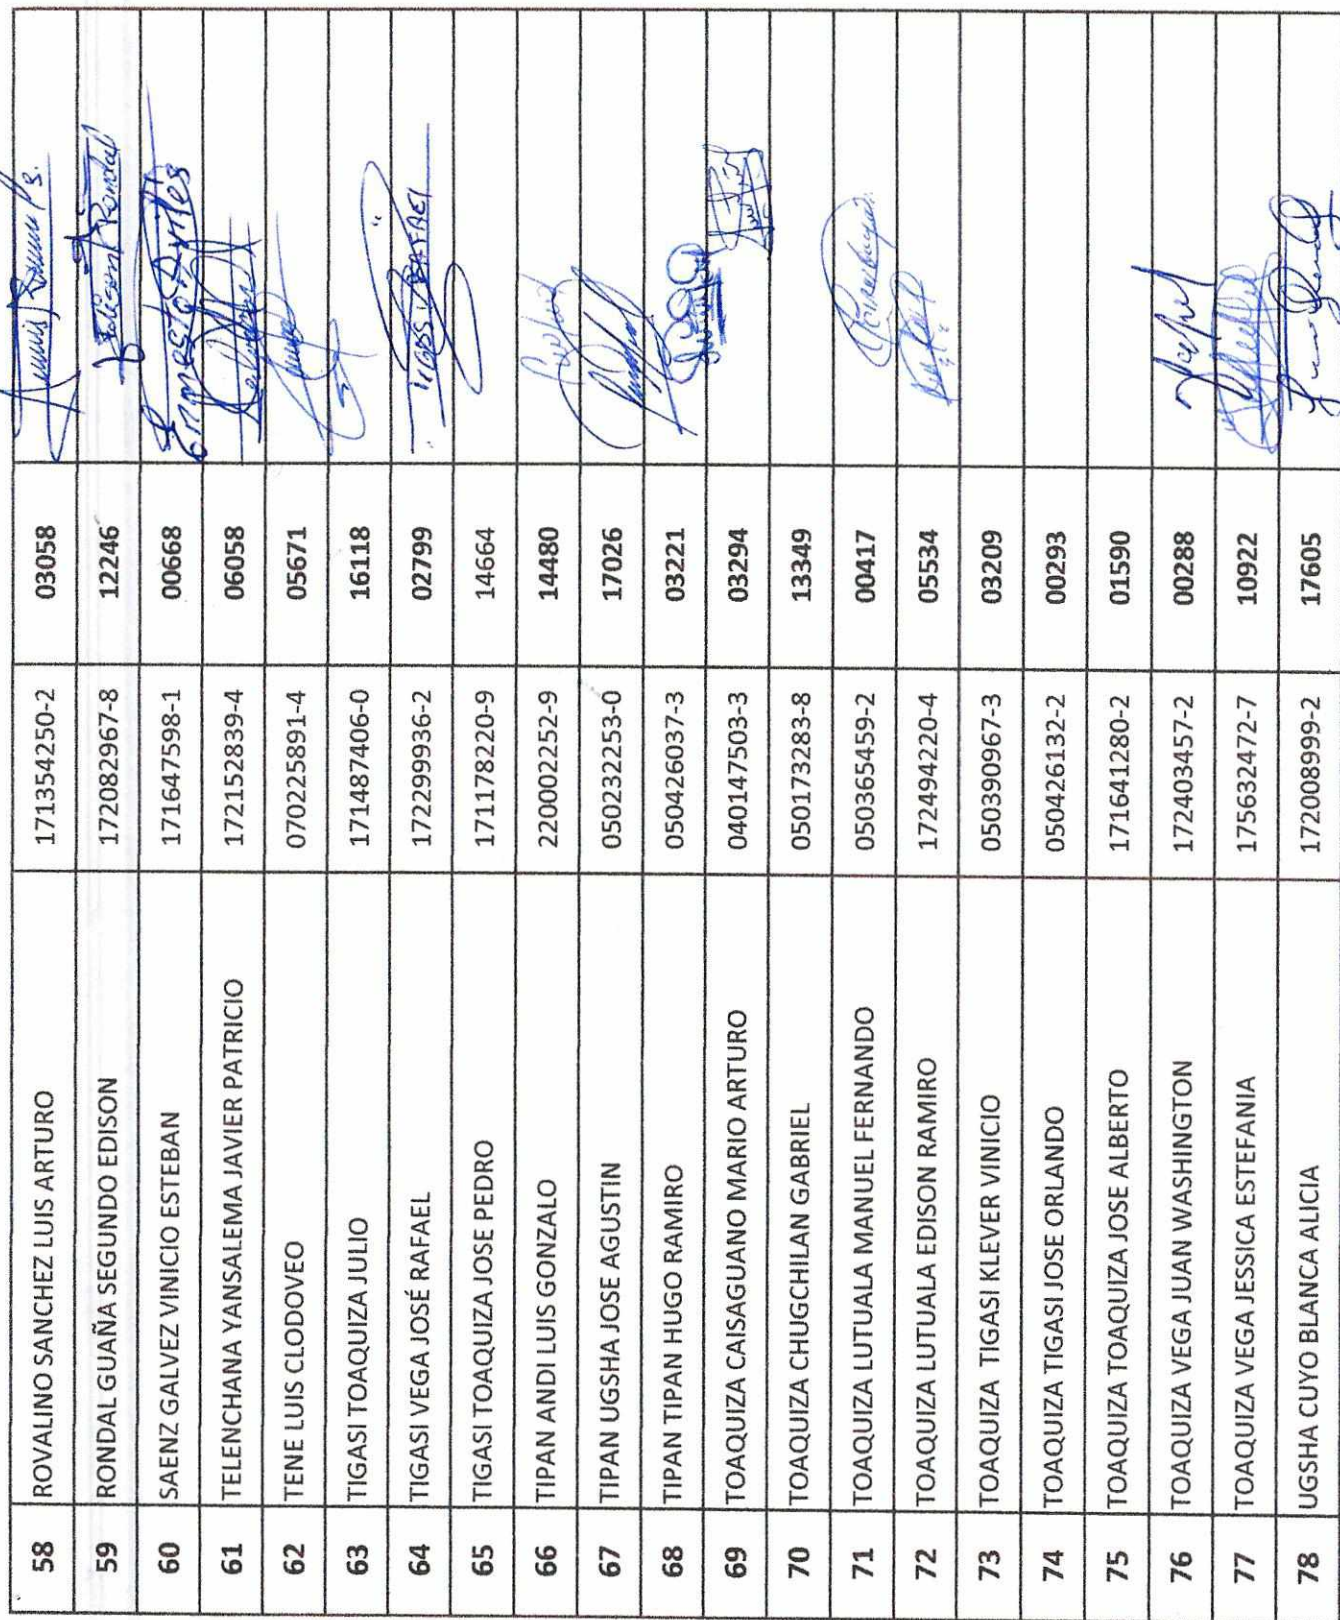 58 ROVALINO SANCHEZ LUIS ARTURO 171354250-2 03058
59 RONDAL GUAÑA SEGUNDO EDISON 172082967-8 12246
60 SAENZ GALVEZ VINICIO ESTEBAN 171647598-1 00668
61 TELENCHANA YANSALEMA JAVIER PATRICIO 172152839-4 06058
62 TENE LUIS CLODOVEO 070225891-4 05671
63 TIGASI TOAQUIZA JULIO 171487406-0 16118
64 TIGASI VEGA JOSÉ RAFAEL 172299936-2 02799
65 TIGASI TOAQUIZA JOSE PEDRO 171178220-9 14664
66 TIPAN ANDI LUIS GONZALO 220002252-9 14480
67 TIPAN UGSHA JOSE AGUSTIN 050232253-0 17026
68 TIPAN TIPAN HUGO RAMIRO 050426037-3 03221
69 TOAQUIZA CAISAGUANO MARIO ARTURO 040147503-3 03294
70 TOAQUIZA CHUGCHILAN GABRIEL 050173283-8 13349
71 TOAQUIZA LUTUALA MANUEL FERNANDO 050365459-2 00417
72 TOAQUIZA LUTUALA EDISON RAMIRO 172494220-4 05534
73 TOAQUIZA TIGASI KLEVER VINICIO 050390967-3 03209
74 TOAQUIZA TIGASI JOSE ORLANDO 050426132-2 00293
75 TOAQUIZA TOAQUIZA JOSE ALBERTO 171641280-2 01590
76 TOAQUIZA VEGA JUAN WASHINGTON 172403457-2 00288
77 TOAQUIZA VEGA JESSICA ESTEFANIA 175632472-7 10922
78 UGSHA CUYO BLANCA ALICIA 172008999-2 17605